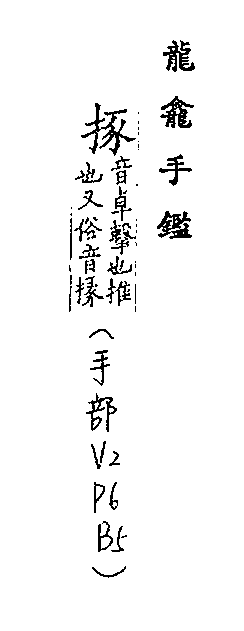 龍龕手鑑
㧻
音卓擊也推
也又俗音掾
(手部V2P6B5)